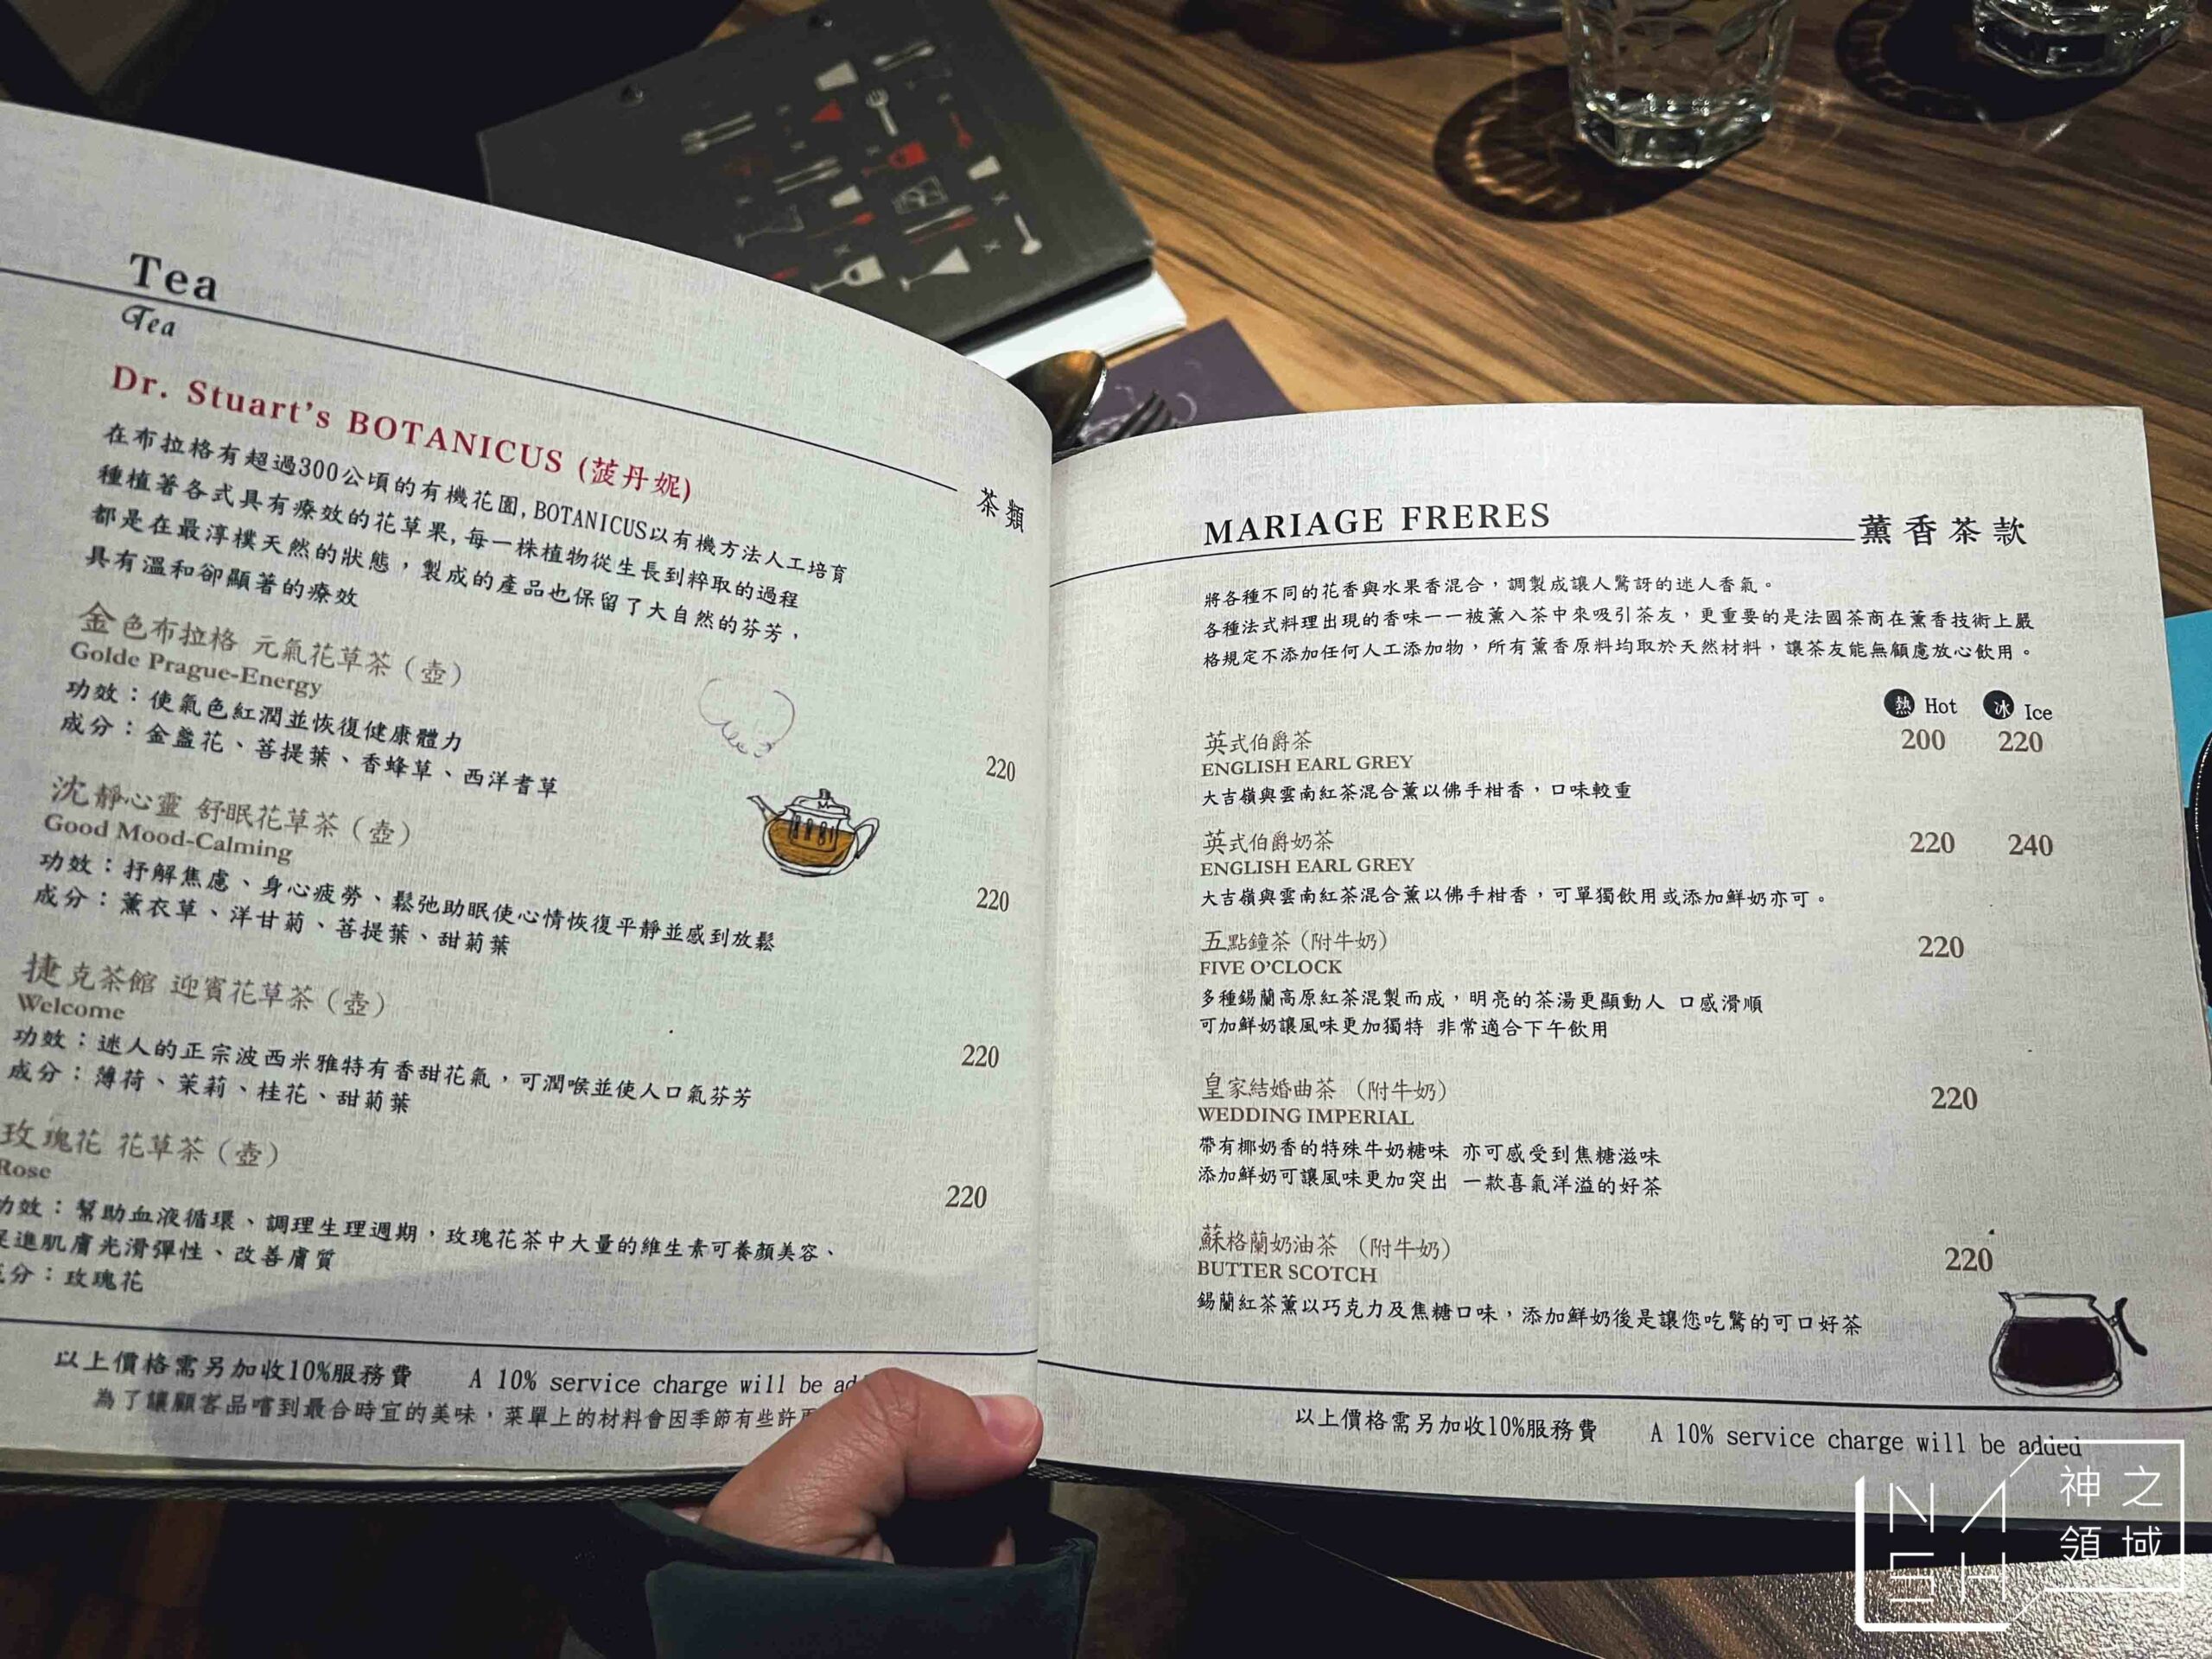 Tea
Tea
茶類
Dr. Stuart's BOTANICUS (菠丹妮)
在布拉格有超過300公頃的有機花園,BOTANICUS以有機方法人工培育
種植著各式具有療效的花草果,每一株植物從生長到粹取的過程
都是在最淳樸天然的狀態，製成的產品也保留了大自然的芬芳，
具有溫和卻顯著的療效
金色布拉格 元氣花草茶（壺）
Golde Prague-Energy
功效：使氣色紅潤並恢復健康體力
成分：金盞花、菩提葉、香蜂草、西洋耆草
220
沈靜心靈 舒眠花草茶（壺）
Good Mood-Calming
功效：抒解焦慮、身心疲勞、鬆弛助眠使心情恢復平靜並感到放鬆
成分：薰衣草、洋甘菊、菩提葉、甜菊葉
220
捷克茶館 迎賓花草茶（壺）
Welcome
功效：迷人的正宗波西米雅特有香甜花氣，可潤喉並使人口氣芬芳
成分：薄荷、茉莉、桂花、甜菊葉
220
玫瑰花 花草茶（壺）
Rose
功效：幫助血液循環、調理生理週期，玫瑰花茶中大量的維生素可養顏美容、
進肌膚光滑彈性、改善膚質
分：玫瑰花
220
以上價格需另加收10%服務費 A 10% service charge will be
為了讓顧客品嚐到最合時宜的美味，菜單上的材料會因季節有些許
MARIAGE FRERES 薰香茶款
將各種不同的花香與水果香混合，調製成讓人驚訝的迷人香氣。
各種法式料理出現的香味一一被薰入茶中來吸引茶友，更重要的是法國茶商在薰香技術上嚴
格規定不添加任何人工添加物，所有薰香原料均取於天然材料，讓茶友能無顧慮放心飲用。
熱 Hot 冰 Ice
英式伯爵茶 200 220
ENGLISH EARL GREY
大吉嶺與雲南紅茶混合薰以佛手柑香，口味較重
英式伯爵奶茶 220 240
ENGLISH EARL GREY
大吉嶺與雲南紅茶混合薰以佛手柑香，可單獨飲用或添加鮮奶亦可。
五點鐘茶（附牛奶） 220
FIVE O'CLOCK
多種錫蘭高原紅茶混製而成，明亮的茶湯更顯動人 口感滑順
可加鮮奶讓風味更加獨特 非常適合下午飲用
皇家結婚曲茶 （附牛奶） 220
WEDDING IMPERIAL
帶有椰奶香的特殊牛奶糖味 亦可感受到焦糖滋味
添加鮮奶可讓風味更加突出 一款喜氣洋溢的好茶
蘇格蘭奶油茶 （附牛奶） 220
BUTTER SCOTCH
錫蘭紅茶薰以巧克力及焦糖口味，添加鮮奶後是讓您吃驚的可口好茶
以上價格需另加收10%服務費 A 10% service charge will be added
NASH
神之
領域